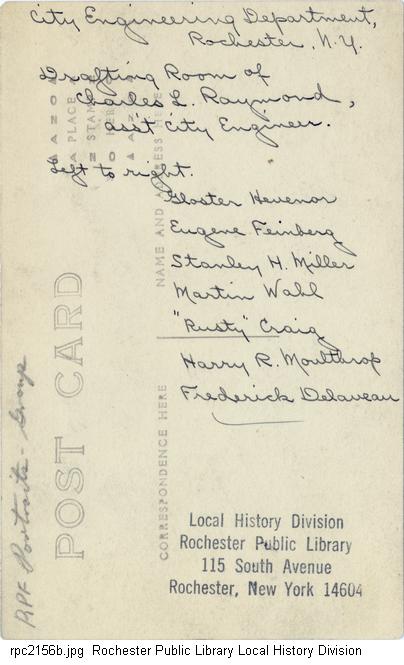 City Engineering Department,
Rochester, N.Y.
Drafting Room of
Charles L. Raymond,
ass't City Engineer.
Left to right.
Gloster Hevenor
Eugene Feinberg
Stanley H. Miller
Martin Wahl
"Rusty" Craig
Harry R. Moulthrop
Frederick Delaveau
AZO
PLACE
STAMP
HERE
AZO
NAME AND ADDRESS HERE
POST CARD
CORRESPONDENCE HERE
RPF Portraits - Group
Local History Division
Rochester Public Library
115 South Avenue
Rochester, New York 14604
rpc2156b.jpg Rochester Public Library Local History Division